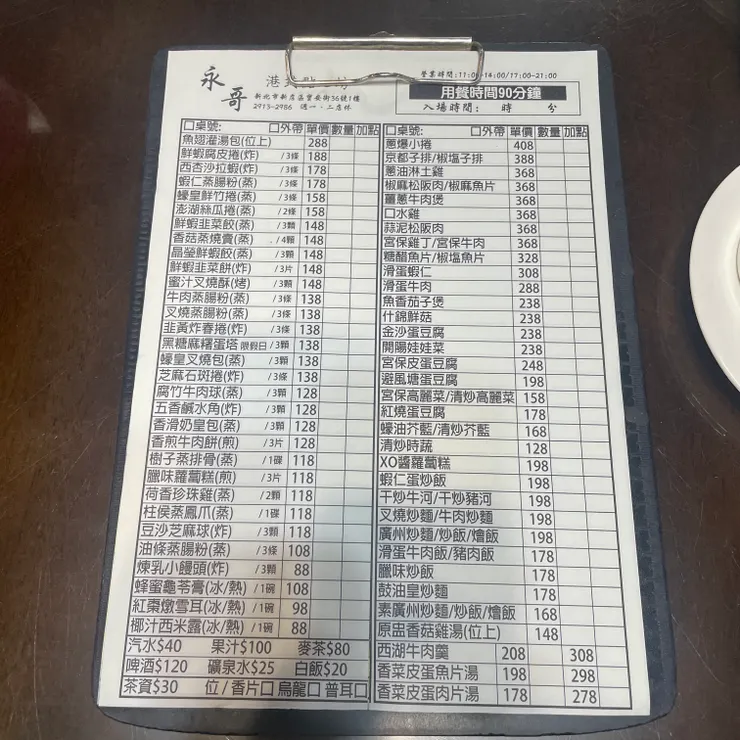 永哥
港式點 坊
新北市新店區寶安街36號1樓
2913-2986 週一.二店休
營業時間:11:00-14:00/17:00-21:00
用餐時間90分鐘
入場時間: 時 分
口桌號: 口外帶 單價 數量 加點
魚翅灌湯包(位上) 288
鮮蝦腐皮捲(炸) /3條 188
西杏沙拉蝦(炸) /3條 178
蝦仁蒸腸粉(蒸) /3條 178
蠔皇鮮竹捲(蒸) /3條 158
澎湖絲瓜捲(蒸) /2條 158
鮮蝦韭菜餃(蒸) /3顆 148
香菇蒸燒賣(蒸) /4顆 148
晶瑩鮮蝦餃(蒸) /3顆 148
鮮蝦韭菜餅(炸) /3片 148
蜜汁叉燒酥(烤) /3顆 148
牛肉蒸腸粉(蒸) /3條 138
叉燒蒸腸粉(蒸) /3條 138
韭黃炸春捲(炸) /3條 138
黑糖麻糬蛋塔 限假日/3顆 138
蠔皇叉燒包(蒸) /3顆 138
芝麻石斑捲(炸) /3條 138
腐竹牛肉球(蒸) /3顆 128
五香鹹水角(炸) /3顆 128
香滑奶皇包(蒸) /3顆 128
香煎牛肉餅(煎) /3片 128
樹子蒸排骨(蒸) /1碟 118
臘味蘿蔔糕(煎) /3片 118
荷香珍珠雞(蒸) /2顆 118
柱侯蒸鳳爪(蒸) /1碟 118
豆沙芝麻球(炸) /3顆 118
油條蒸腸粉(蒸) /3條 108
煉乳小饅頭(炸) /3顆 88
蜂蜜龜苓膏(冰/熱) /1碗 108
紅棗燉雪耳(冰/熱) /1碗 98
椰汁西米露(冰/熱) /1碗 88
汽水$40 果汁$100 麥茶$80
啤酒$120 礦泉水$25 白飯$20
茶資$30 位/香片口 烏龍口 普耳口
口桌號: 口外帶 單價 數量 加點
蔥爆小捲 408
京都子排/椒塩子排 388
蔥油淋土雞 368
椒麻松阪肉/椒麻魚片 368
薑蔥牛肉煲 368
口水雞 368
蒜泥松阪肉 368
宮保雞丁/宮保牛肉 368
糖醋魚片/椒塩魚片 328
滑蛋蝦仁 308
滑蛋牛肉 288
魚香茄子煲 238
什錦鮮菇 238
金沙蛋豆腐 238
開陽娃娃菜 238
宮保皮蛋豆腐 248
避風塘蛋豆腐 198
宮保高麗菜/清炒高麗菜 158
紅燒蛋豆腐 178
蠔油芥藍/清炒芥藍 168
清炒時蔬 128
XO醬蘿蔔糕 198
蝦仁蛋炒飯 198
干炒牛河/干炒豬河 198
叉燒炒麵/牛肉炒麵 198
廣州炒麵/炒飯/燴飯 198
滑蛋牛肉飯/豬肉飯 178
臘味炒飯 178
鼓油皇炒麵 178
素廣州炒麵/炒飯/燴飯 168
原盅香菇雞湯(位上) 148
西湖牛肉羹 208 308
香菜皮蛋魚片湯 198 298
香菜皮蛋肉片湯 178 278